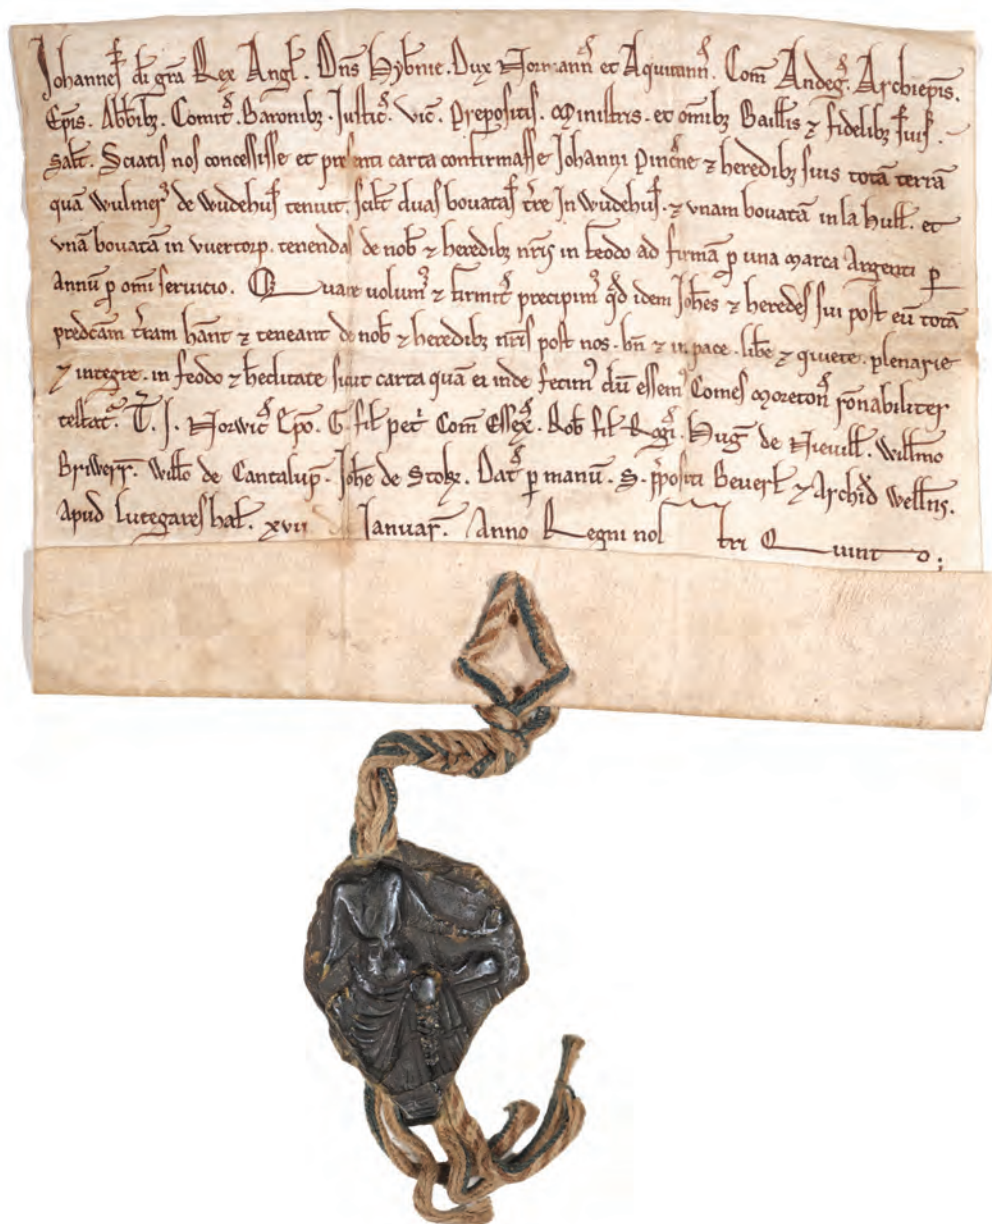 Johannes di gra Rex Angl. Dns Hybnie. Dux Normann et Aquitann. Com Andeg. Archiepis.
Epis. Abbibz. Comit. Baronibz. Justic. Vic. Prepositis. Ministris. et omibz Baillis ⁊ fidelibz suis.
Salt. Sciatis nos concessisse et presenti carta confirmasse Johanni Pincne ⁊ heredibz suis totā terrā
quā Wulmer de Wudehus tenuit. scilt duas bouatas tre In Wudehus. ⁊ vnam bouatā in la Hull. et
vnā bouatā in Vuertorp. tenendas de nob ⁊ heredibz nris in feodo ad firmā p una marca Argenti p
Annū p omi seruicio. Quare uolum ⁊ firmit precipim qd idem Johes ⁊ heredes sui post eū totā
predcam tram hant ⁊ teneant de nob ⁊ heredibz nris post nos. bn ⁊ in pace. libe ⁊ quiete. plenarie
⁊ integre. in feodo ⁊ heditate sicut carta quā ei inde fecim dū essem Comes Moreton ronabiliter
testat. T. J. Norwic Epo. G. fil pet Com Essex. Rob fil Rogi. Hug de Nieuill. Willmo
Briwerr. Willo de Cantalup. Johe de Stokes. Dat p manū. S. ppositi Beuerl ⁊ Archid Wellns.
Apud Lutegareshal. xvii Januar. Anno Regni nostri Quinto;